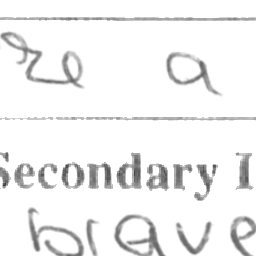 re a
Secondary I
brave